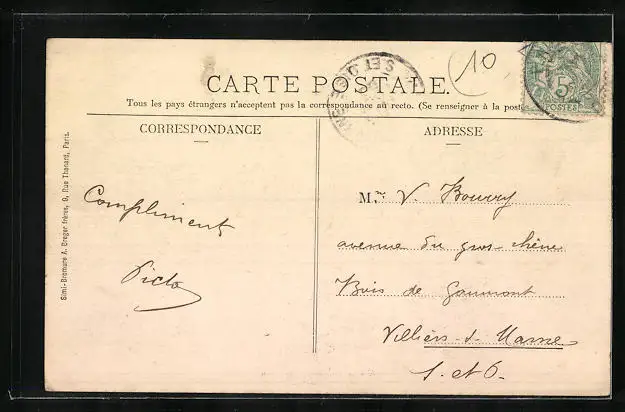 10
CARTE POSTALE.
Tous les pays étrangers n'acceptent pas la correspondance au recto. (Se renseigner à la poste
5c
POSTES
CORRESPONDANCE
ADRESSE
Simi-Bromure A. Breger frères, 9, Rue Thénard, Paris.
Compliment
Victo
Mme V. Bourry
avenue du gros chêne
Bois de Gaumont
Villiers-s-Marne
S. et O.